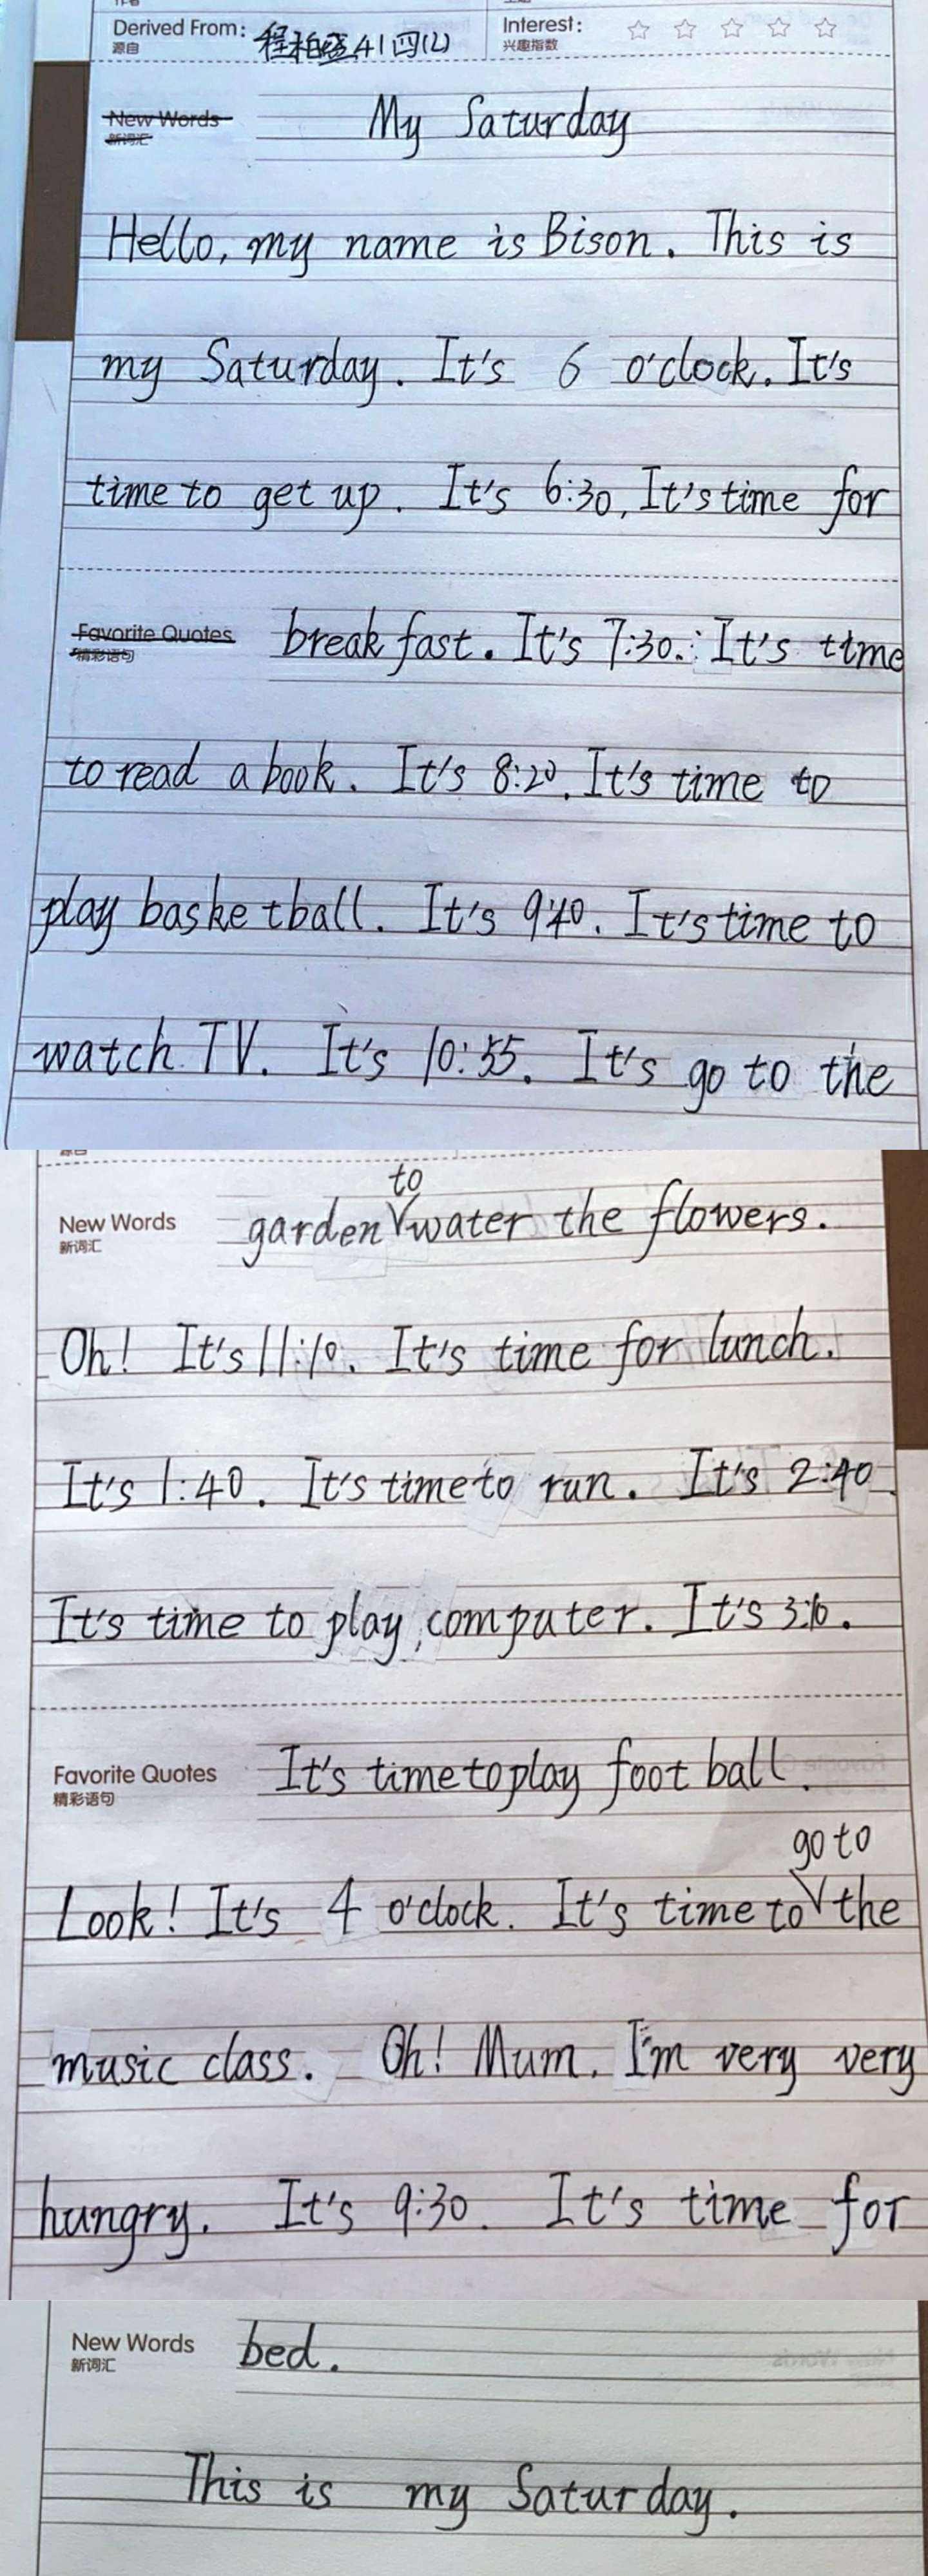 Derived From: 程柏盛41四(2) Interest: ☆ ☆ ☆ ☆ ☆
源自 兴趣指数
New Words My Saturday
新词汇
Hello, my name is Bison. This is
my Saturday. It's 6 o'clock. It's
time to get up. It's 6:30, It's time for
Favorite Quotes break fast. It's 7:30. It's time
精彩语句
to read a book. It's 8:20. It's time to
play basketball. It's 9:40. It's time to
watch TV. It's 10:55. It's go to the
to
New Words garden water the flowers.
新词汇
Oh! It's 11:10. It's time for lunch.
It's 1:40. It's time to run. It's 2:40.
It's time to play computer. It's 3:10.
Favorite Quotes It's time to play foot ball.
精彩语句
go to
Look! It's 4 o'clock. It's time to the
music class. Oh! Mum. I'm very very
hungry. It's 9:30. It's time for
New Words bed.
新词汇
This is my Saturday.